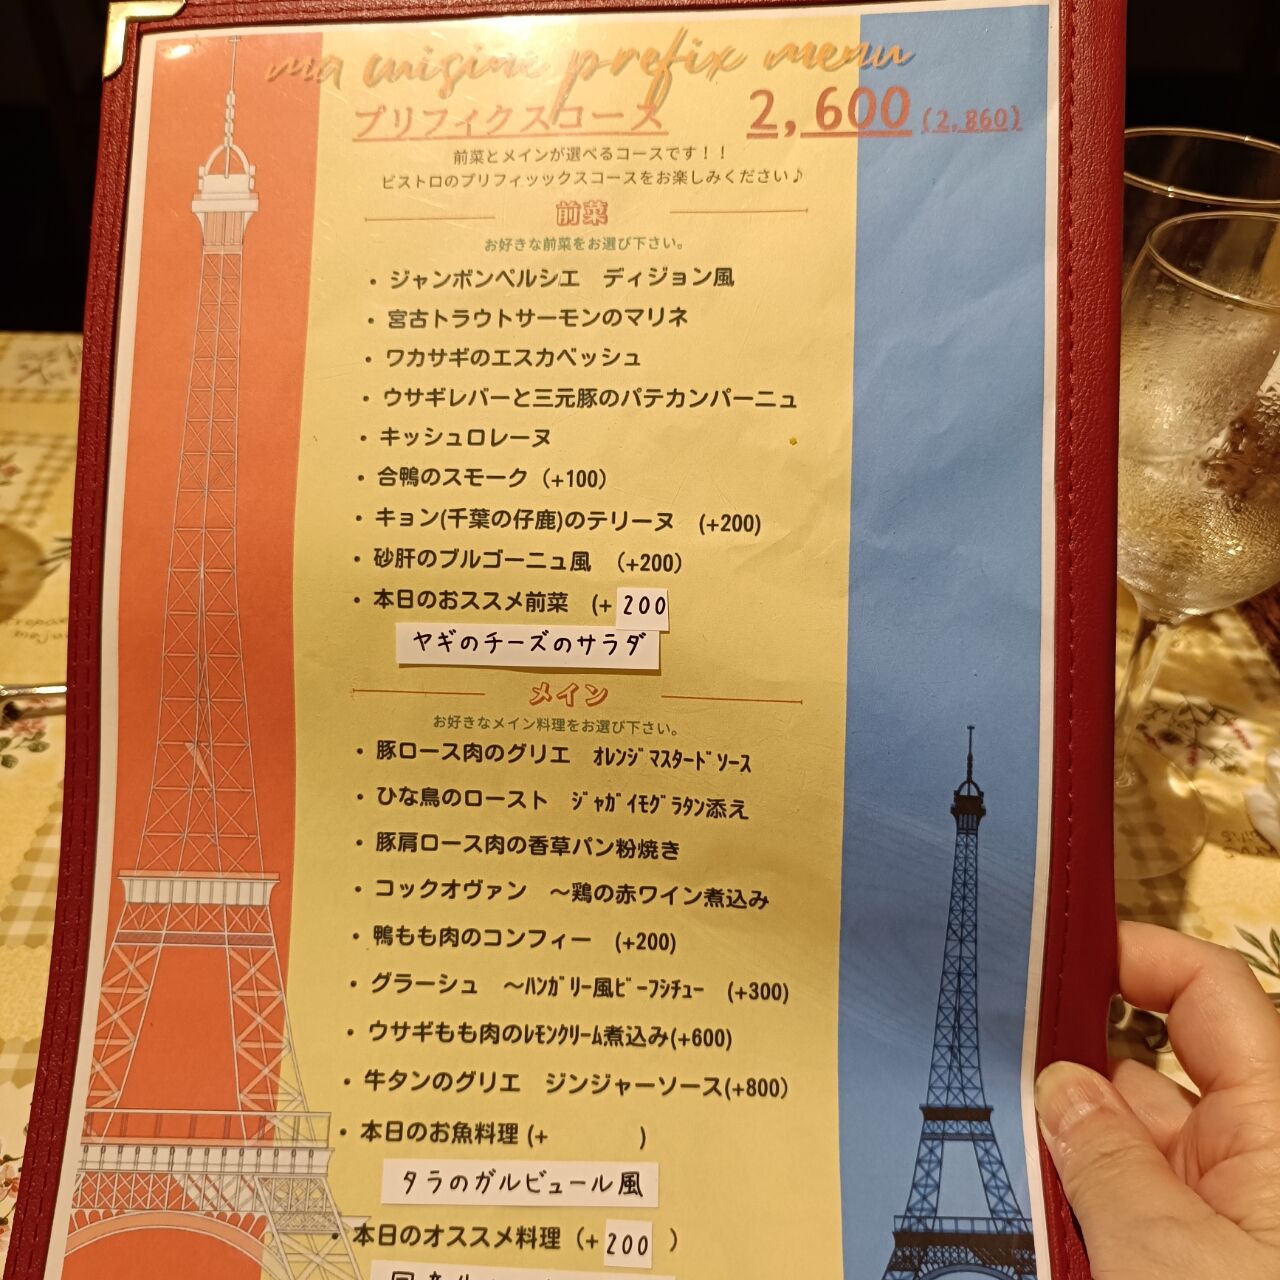 ma cuisine prefix menu
プリフィクスコース 2,600(2,860)
前菜とメインが選べるコースです！！
ビストロのプリフィッックスコースをお楽しみください♪
前菜
お好きな前菜をお選び下さい。
・ジャンボンペルシエ　ディジョン風
・宮古トラウトサーモンのマリネ
・ワカサギのエスカベッシュ
・ウサギレバーと三元豚のパテカンパーニュ
・キッシュロレーヌ
・合鴨のスモーク（+100）
・キョン(千葉の仔鹿)のテリーヌ　(+200)
・砂肝のブルゴーニュ風　（+200）
・本日のおススメ前菜　(+ 200
ヤギのチーズのサラダ
メイン
お好きなメイン料理をお選び下さい。
・豚ロース肉のグリエ　ｵﾚﾝｼﾞﾏｽﾀｰﾄﾞｿｰｽ
・ひな鳥のロースト　ｼﾞｬｶﾞｲﾓｸﾞﾗﾀﾝ添え
・豚肩ロース肉の香草パン粉焼き
・コックオヴァン　～鶏の赤ワイン煮込み
・鴨もも肉のコンフィー　(+200)
・グラーシュ　～ﾊﾝｶﾞﾘｰ風ﾋﾞｰﾌｼﾁｭｰ　(+300)
・ウサギもも肉のﾚﾓﾝｸﾘｰﾑ煮込み(+600)
・牛タンのグリエ　ジンジャーソース(+800）
・本日のお魚料理 (+　　　　)
タラのガルビュール風
・本日のオススメ料理（+ 200 ）